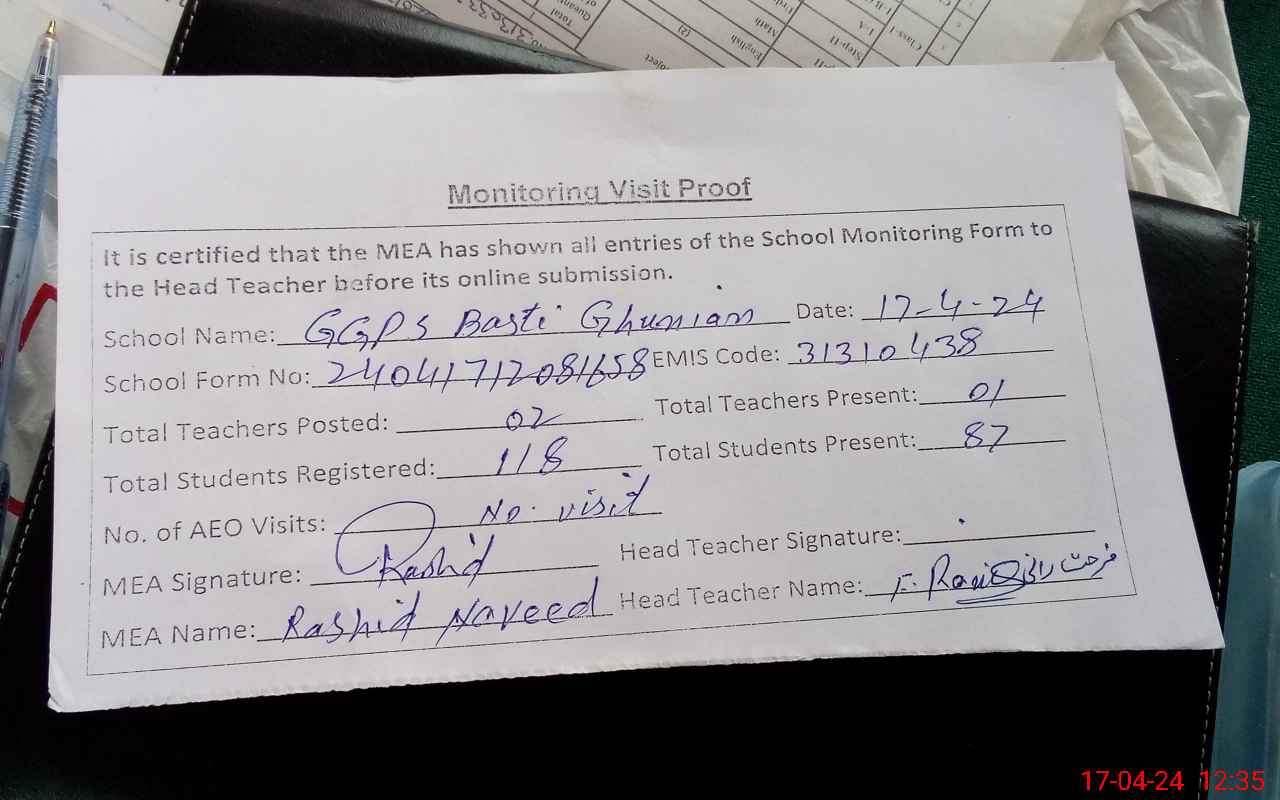 Monitoring Visit Proof
It is certified that the MEA has shown all entries of the School Monitoring Form to
the Head Teacher before its online submission.
School Name: GGPS Basti Ghunian Date: 17-4-24
School Form No: 24041712081658 EMIS Code: 31310438
Total Teachers Posted: 02 Total Teachers Present: 01
Total Students Registered: 118 Total Students Present: 87
No. of AEO Visits: No. visit
MEA Signature: Rashid Head Teacher Signature:
MEA Name: Rashid Naveed Head Teacher Name: F. Rani فرحت رانی
Total
English
Math
(2)
Step-II
Class-1
17-04-24 12:35